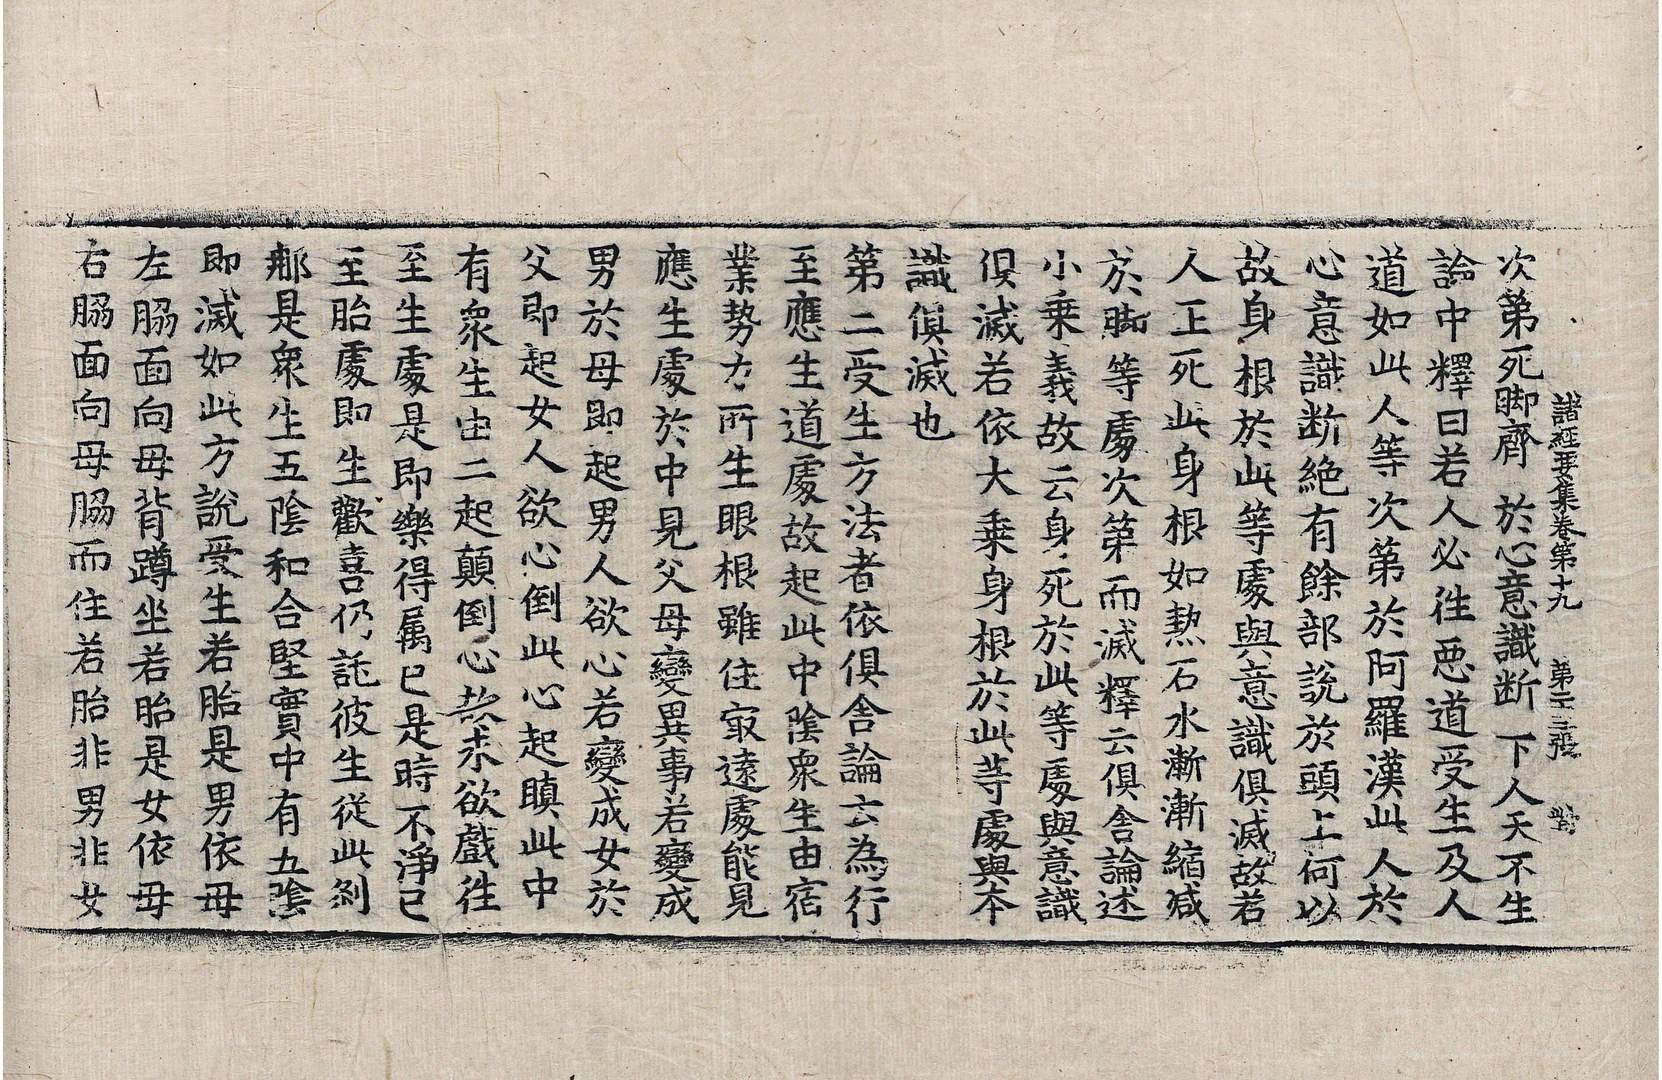 諸經要集卷第十九 第二十三張
次第死脚齊 於心意識断 下人天不生
論中釋曰若人必往惡道受生及人
道如此人等次第於阿羅漢此人於
心意識断絶有餘部說於頭上何以
故身根於此等處與意識俱滅故若
人正死此身根如熱石水漸漸縮減
於脚等處次第而滅釋云俱舍論述
小乗義故云身死於此等處與意識
俱滅若依大乗身根於此等處與本
識俱滅也
第二受生方法者依俱舍論云為行
至應生道處故起此中陰衆生由宿
業勢力所生眼根雖住㝡遠處能見
應生處於中見父母變異事若變成
男於母即起男人欲心若變成女於
父即起女人欲心倒此心起瞋此中
有衆生由二起顛倒心故求欲戲往
至生處是即樂得属已是時不淨已
至胎處即生歡喜仍託彼生從此刹
那是衆生五陰和合堅實中有五陰
即滅如此方說受生若胎是男依母
右脇面向母背蹲坐若胎是女依母
左脇面向母脇而住若胎非男非女